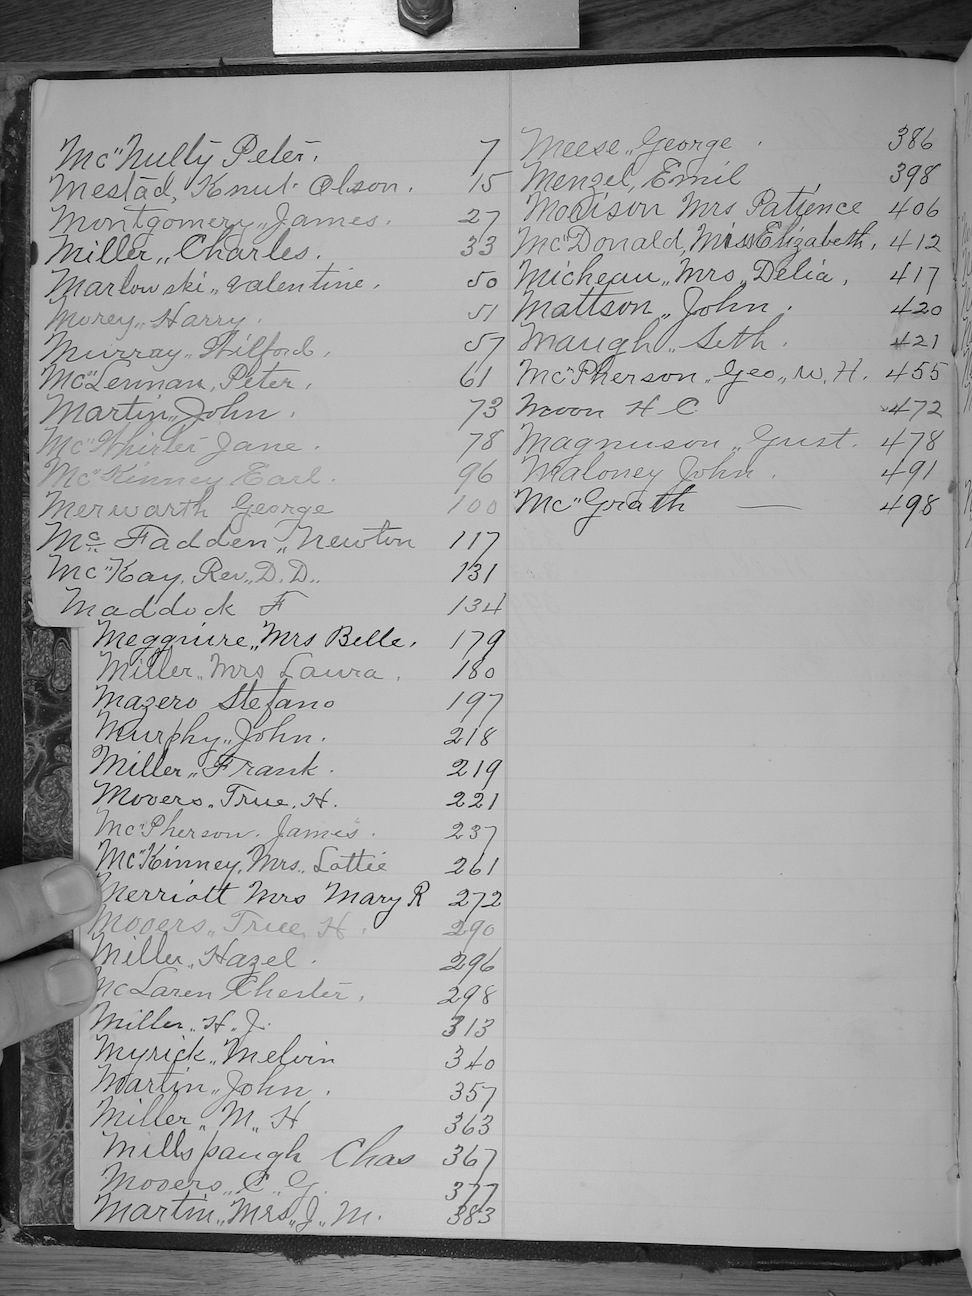 Mc"Nulty Peter. 7
Mestad, Knut Olson. 15
Montgomery,, James. 27
Miller,, Charles. 33
Marlowski,, Valentine. 50
Morey,, Harry. 51
Murray,, Wilford. 57
Mc"Lennan, Peter. 61
Martin,, John. 73
Mc"Whirter Jane. 78
Mc"Kinney Earl. 96
Merwarth George 100
Mc Fadden,, Newton 117
Mc"Kay, Rev,, D.D.. 131
Maddock F 134
Megguire,, Mrs Belle. 179
Miller,, Mrs Laura. 180
Mazero Stefano 197
Murphy,, John. 218
Miller,, Frank. 219
Mooers,, True, H. 221
Mc"Pherson. James. 237
Mc"Kinney, Mrs,, Lottie 261
Merriott Mrs Mary R 272
Mooers,, True, H. 290
Miller,, Hazel. 296
McLaren Chester. 298
Miller,, H. J. 313
Myrick,, Melvin 340
Martin,, John. 357
Miller,, M,, H 363
Millspaugh Chas 367
Mooers,, C,, G. 377
Martin,, Mrs,, J,, M. 383
Meese,, George. 386
Menzel, Emil 398
Morrison Mrs Patience 406
Mc"Donald, Miss Elizabeth. 412
Micheau,, Mrs,, Delia. 417
Mattson,, John. 420
Maugh,, Seth. 421
Mc"Pherson,, Geo,, W. H. 455
Moon H C 472
Magnuson,, Gust. 478
Maloney John. 491
Mc"Grath — 498